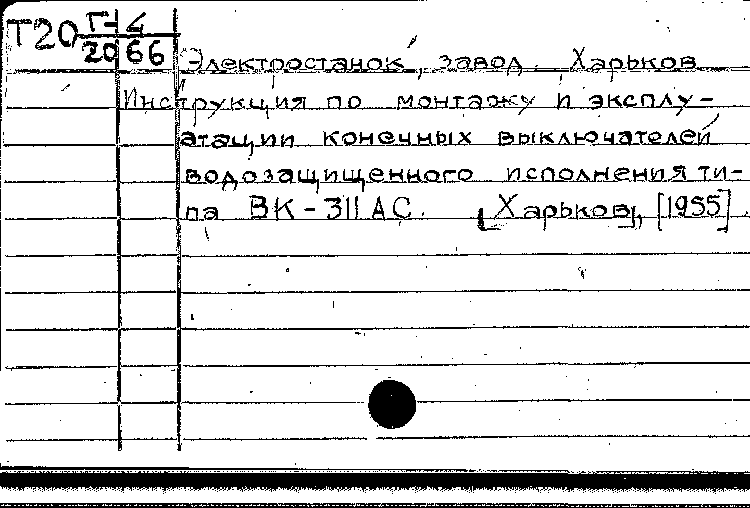 Т20 Г-4
20 66
Электростанок, завод. Харьков
Инструкция по монтажу и эксплу-
атации конечных выключателей
водозащищенного исполнения ти-
па ВК-311АС. [Харьков], [1955].